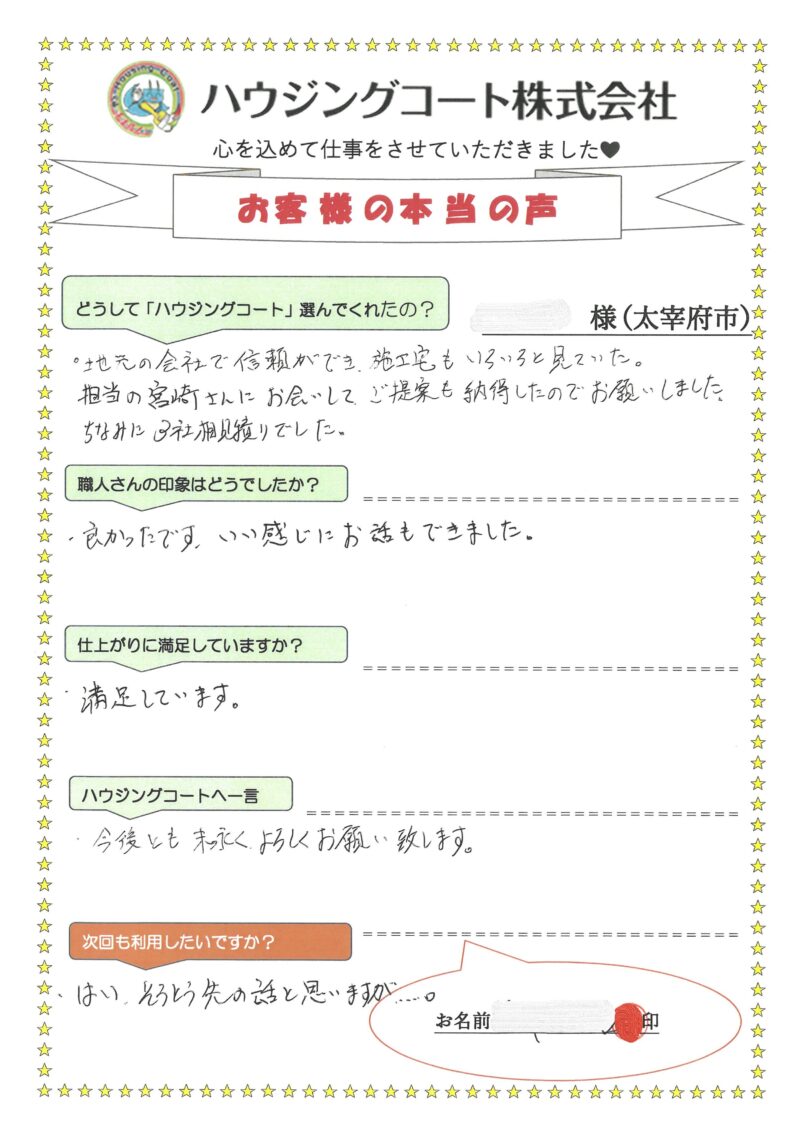 ハウジングコート株式会社
心を込めて仕事をさせていただきました♥
お客様の本当の声
どうして「ハウジングコート」選んでくれたの？
様（太宰府市）
・地元の会社で信頼ができ、施工宅もいろいろと見ていた。
担当の宮崎さんにお会いして、ご提案も納得したのでお願いしました。
ちなみに3社相見積りでした。
職人さんの印象はどうでしたか？
・良かったです、いい感じにお話もできました。
仕上がりに満足していますか？
・満足しています。
ハウジングコートへ一言
・今後とも末永くよろしくお願い致します。
次回も利用したいですか？
・はい、そうとう先の話と思いますが……。
お名前 印